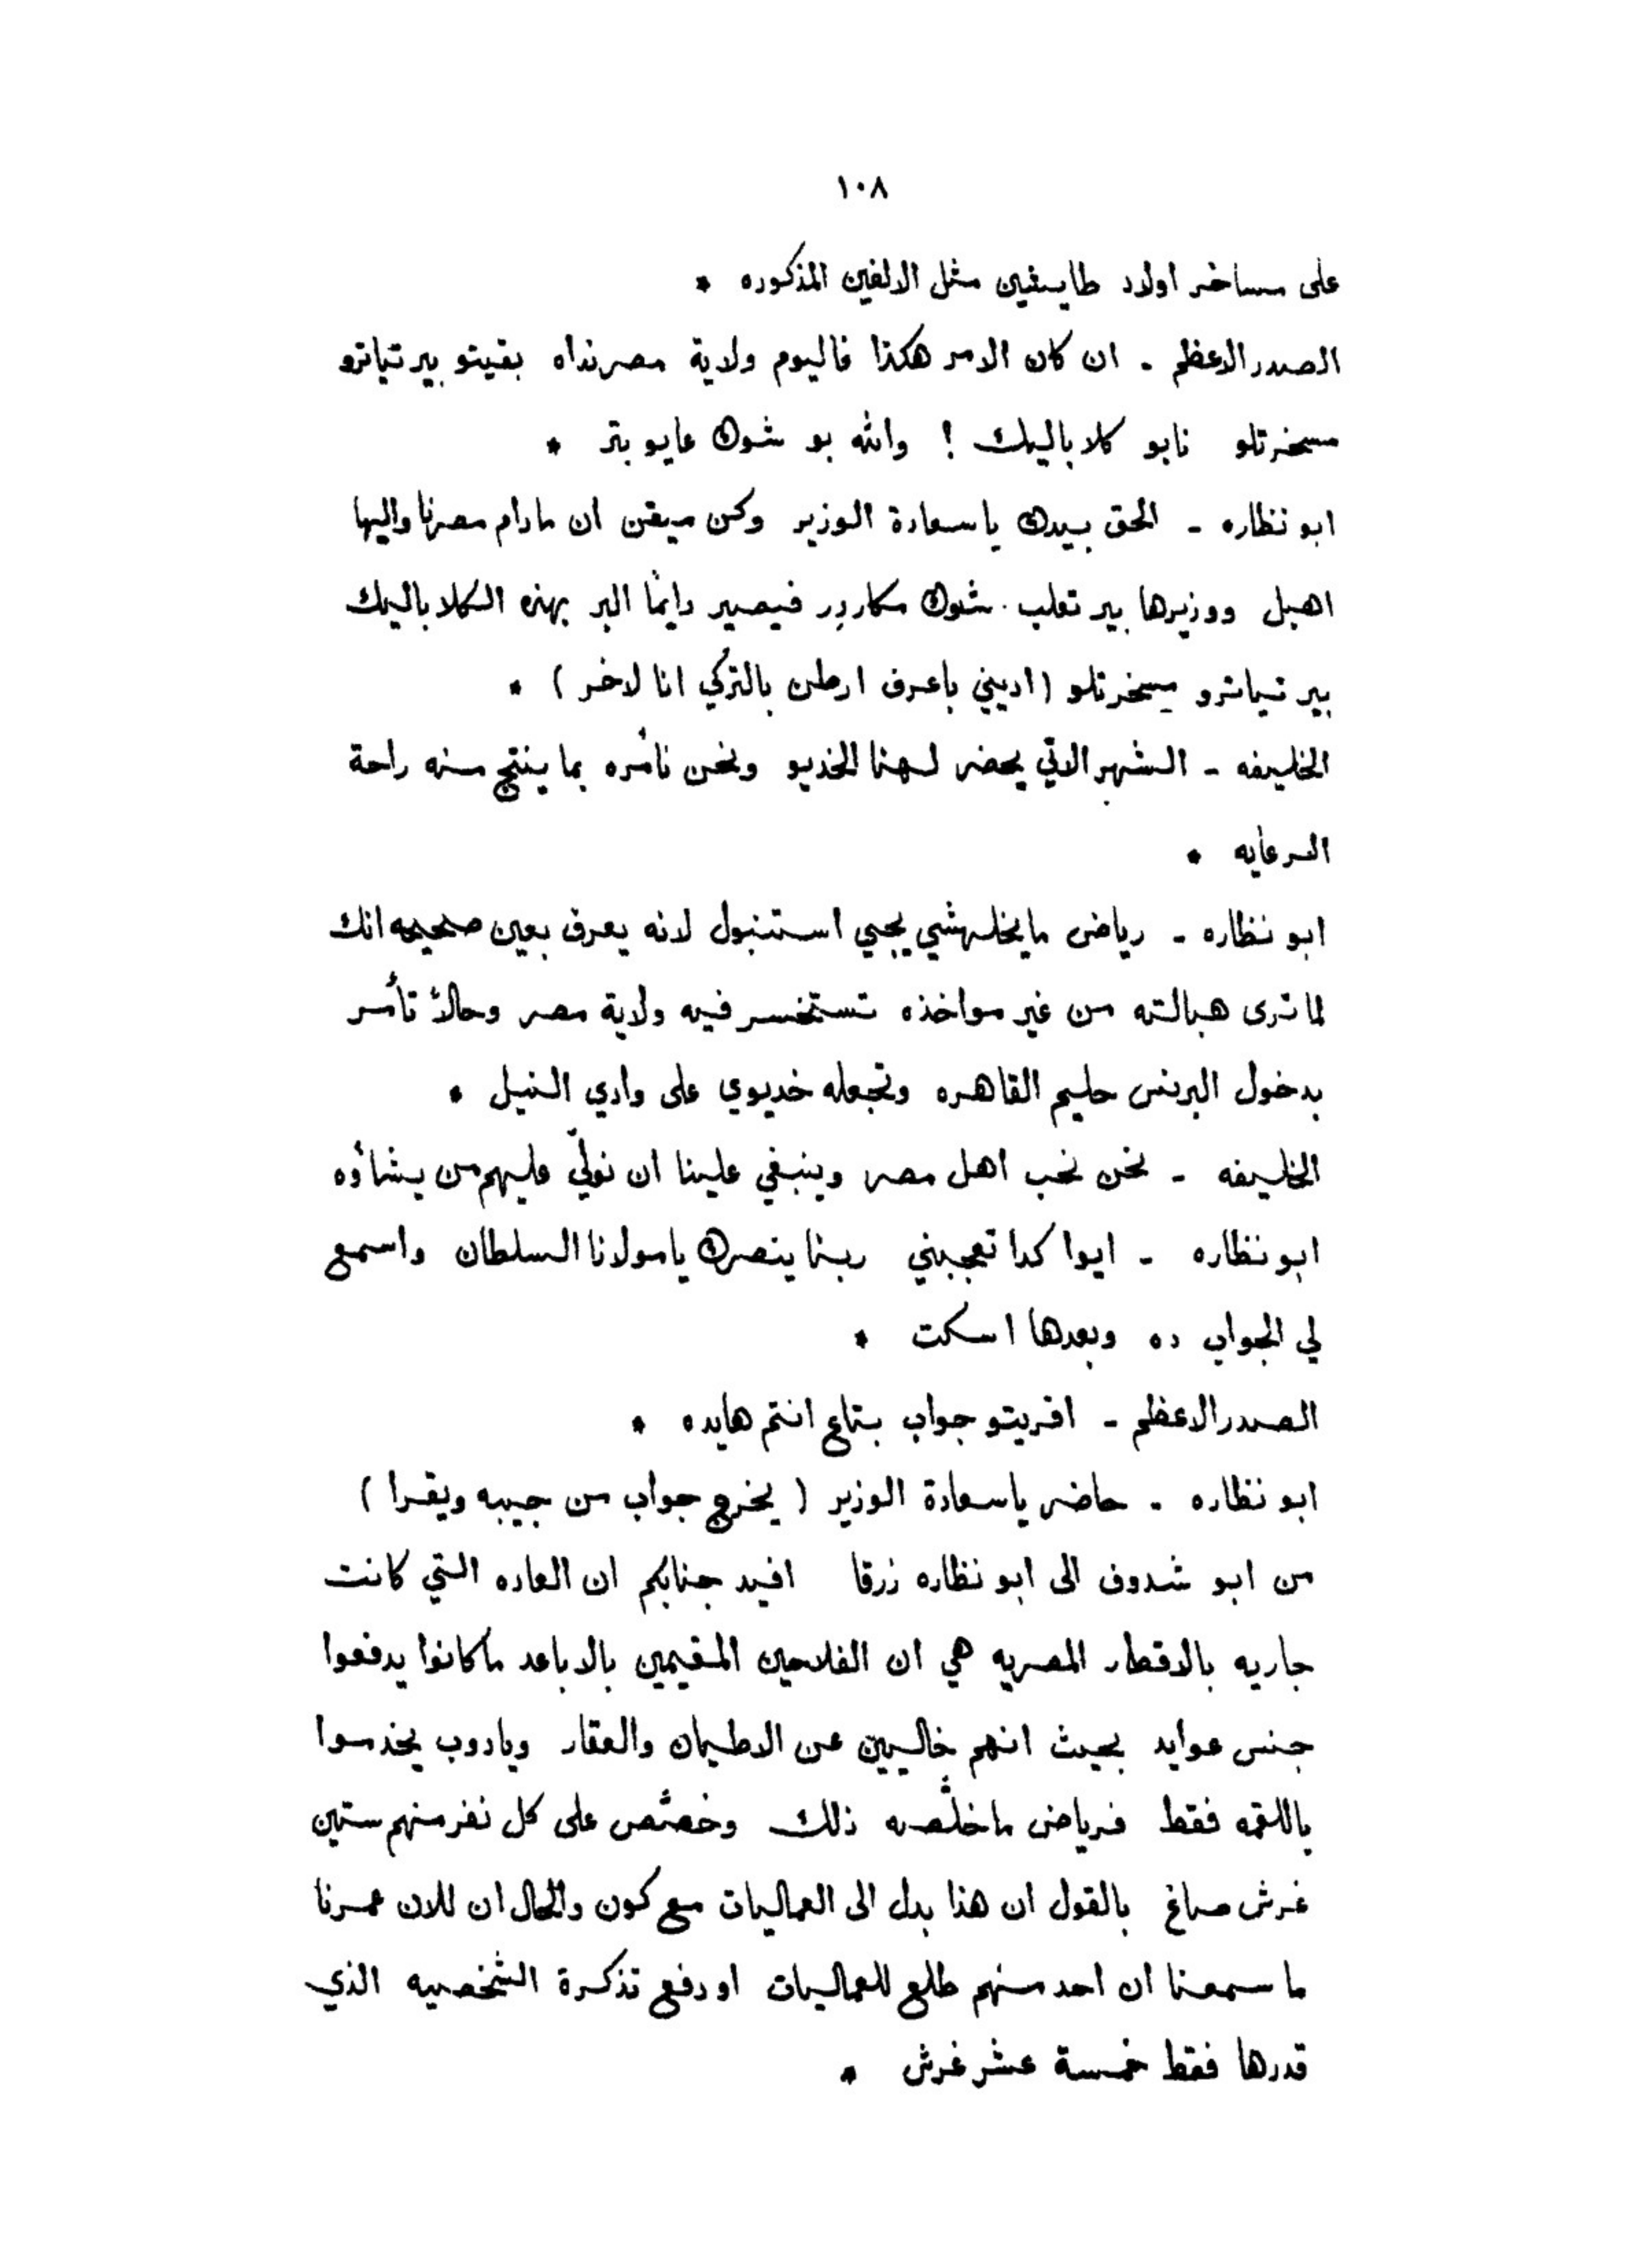 ١٠٨
على مساخر اولاد طايشين مثل الالفين المذكوره *
الصدر الاعظم - ان كان الامر هكذا فاليوم ولاية مصرنداه بقيتو بير تياترو
مسخرتلو نابو كلاباليك ! والله بو شوك عايو بتر *
ابو نظاره - الحق بيدك ياسعادة الوزير وكن ميقن ان مادام مصرنا واليها
اهبل ووزيرها بير تعلب شوك مكاردر فيصير دايمًا البر بهذه الكلاباليك
بير تياترو مسخرتلو (اديني باعرف ارطن بالتركي انا لاخر) *
الخليفه - الشهر الاتي يحضر لهنا الخديو ونحن نأمره بما ينتج منه راحة
الرعايه *
ابو نظاره - رياض مايخلهشي يجي استنبول لانه يعرف بعين صحيحه انك
لما ترى هبالته من غير مواخذه تستخسر فيه ولاية مصر وحالاً تأمر
بدخول البرنس حليم القاهره وتجعله خديوي على وادي النيل *
الخليفه - نحن نحب اهل مصر وينبغي علينا ان نولّي عليهم من يشاؤه
ابو نظاره - ايوا كدا تعجبني ربنا ينصرك يامولانا السلطان واسمع
لي الجواب ده وبعدها اسكت *
الصدر الاعظم - اقريتو جواب بتاع انتم هايده *
ابو نظاره - حاضر ياسعادة الوزير (يخرج جواب من جيبه ويقرا)
من ابو شدوف الى ابو نظاره زرقا افيد جنابكم ان العاده التي كانت
جاريه بالاقطار المصريه هي ان الفلاحين المقيمين بالاباعد ماكانوا يدفعوا
جنس عوايد بحيث انهم خاليين عن الاطيان والعقار ويادوب يخدموا
باللقمه فقط فرياض ماخلّصه ذلك وخصّص على كل نفر منهم ستين
غرش صاغ بالقول ان هذا بدل الى العماليات مع كون والحال ان للان عمرنا
ما سمعنا ان احد منهم طلع للعماليات او دفع تذكرة الشخصيه الذي
قدرها فقط خمسة عشر غرش *